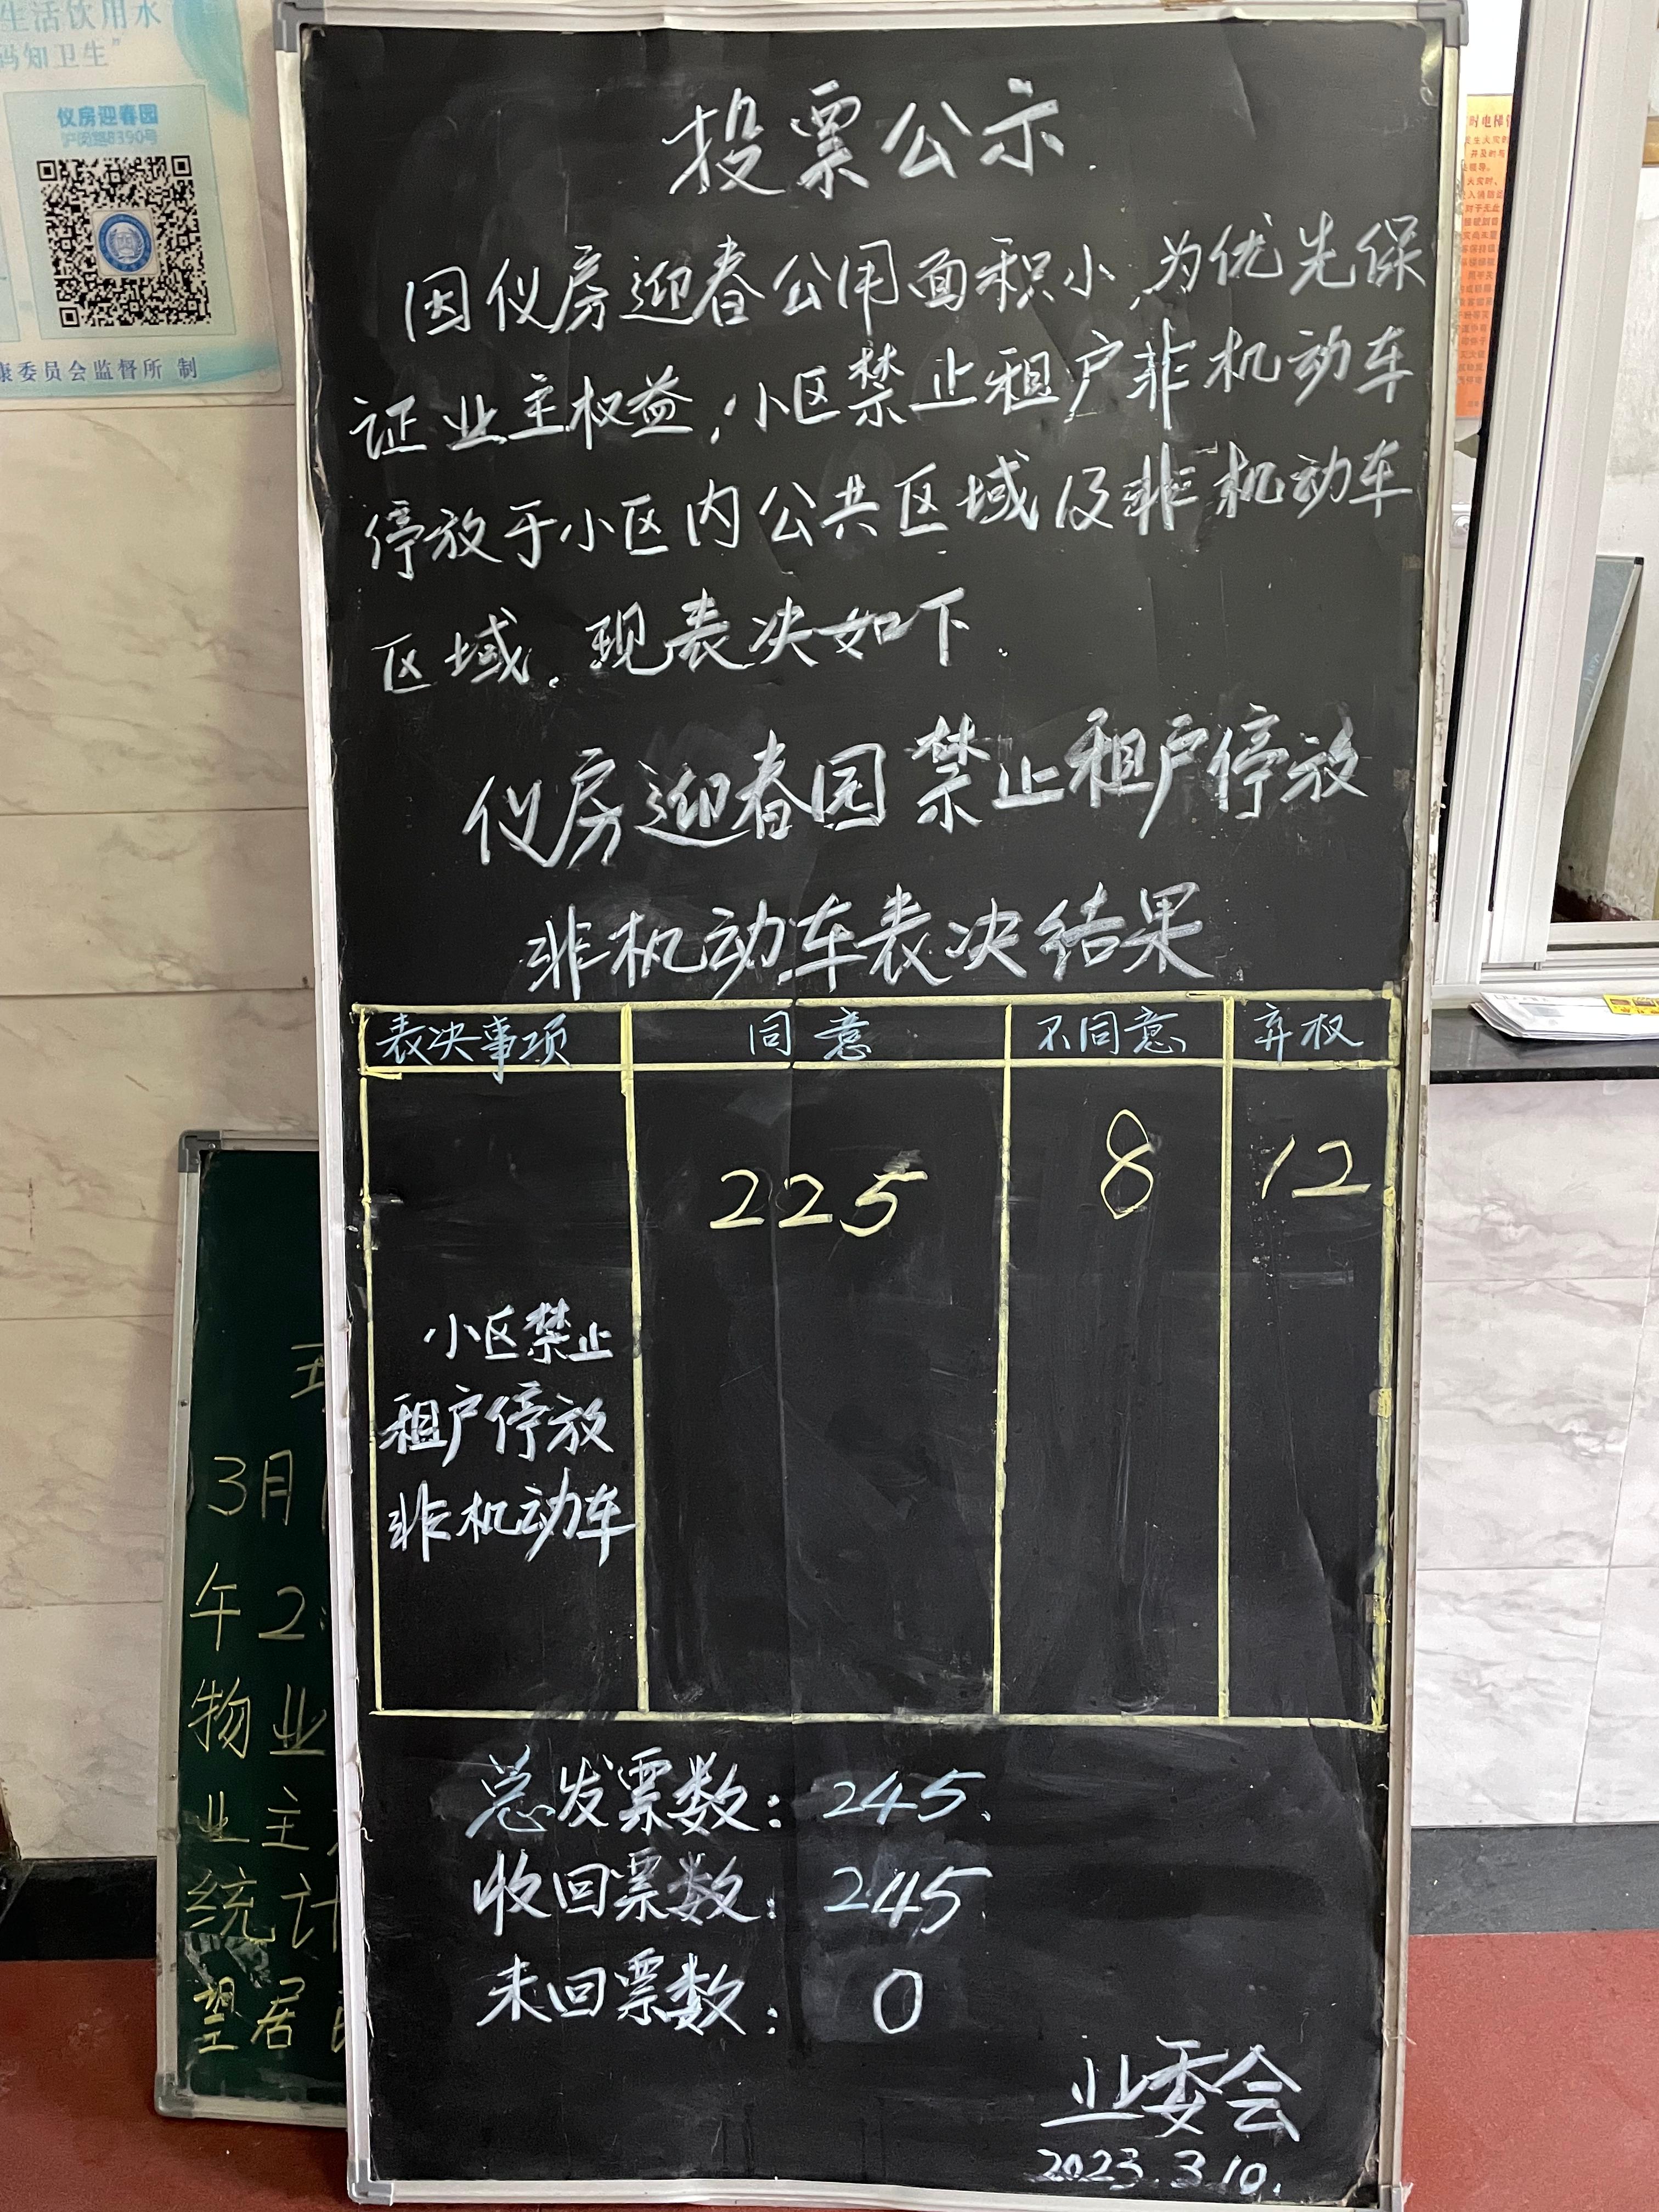 生活饮用水
码知卫生”
仪房迎春园
沪闵路8390号
康委员会监督所 制
投票公示
因仪房迎春公用面积小,为优先保
证业主权益,小区禁止租户非机动车
停放于小区内公共区域及非机动车
区域.现表决如下.
仪房迎春园禁止租户停放
非机动车表决结果
表决事项 同意 不同意 弃权
225 8 12
小区禁止
租户停放
非机动车
总发票数:245.
收回票数:245.
未回票数: 0
业委会
2023.3.10.
3月
午2:
物业
业主
统计
望居